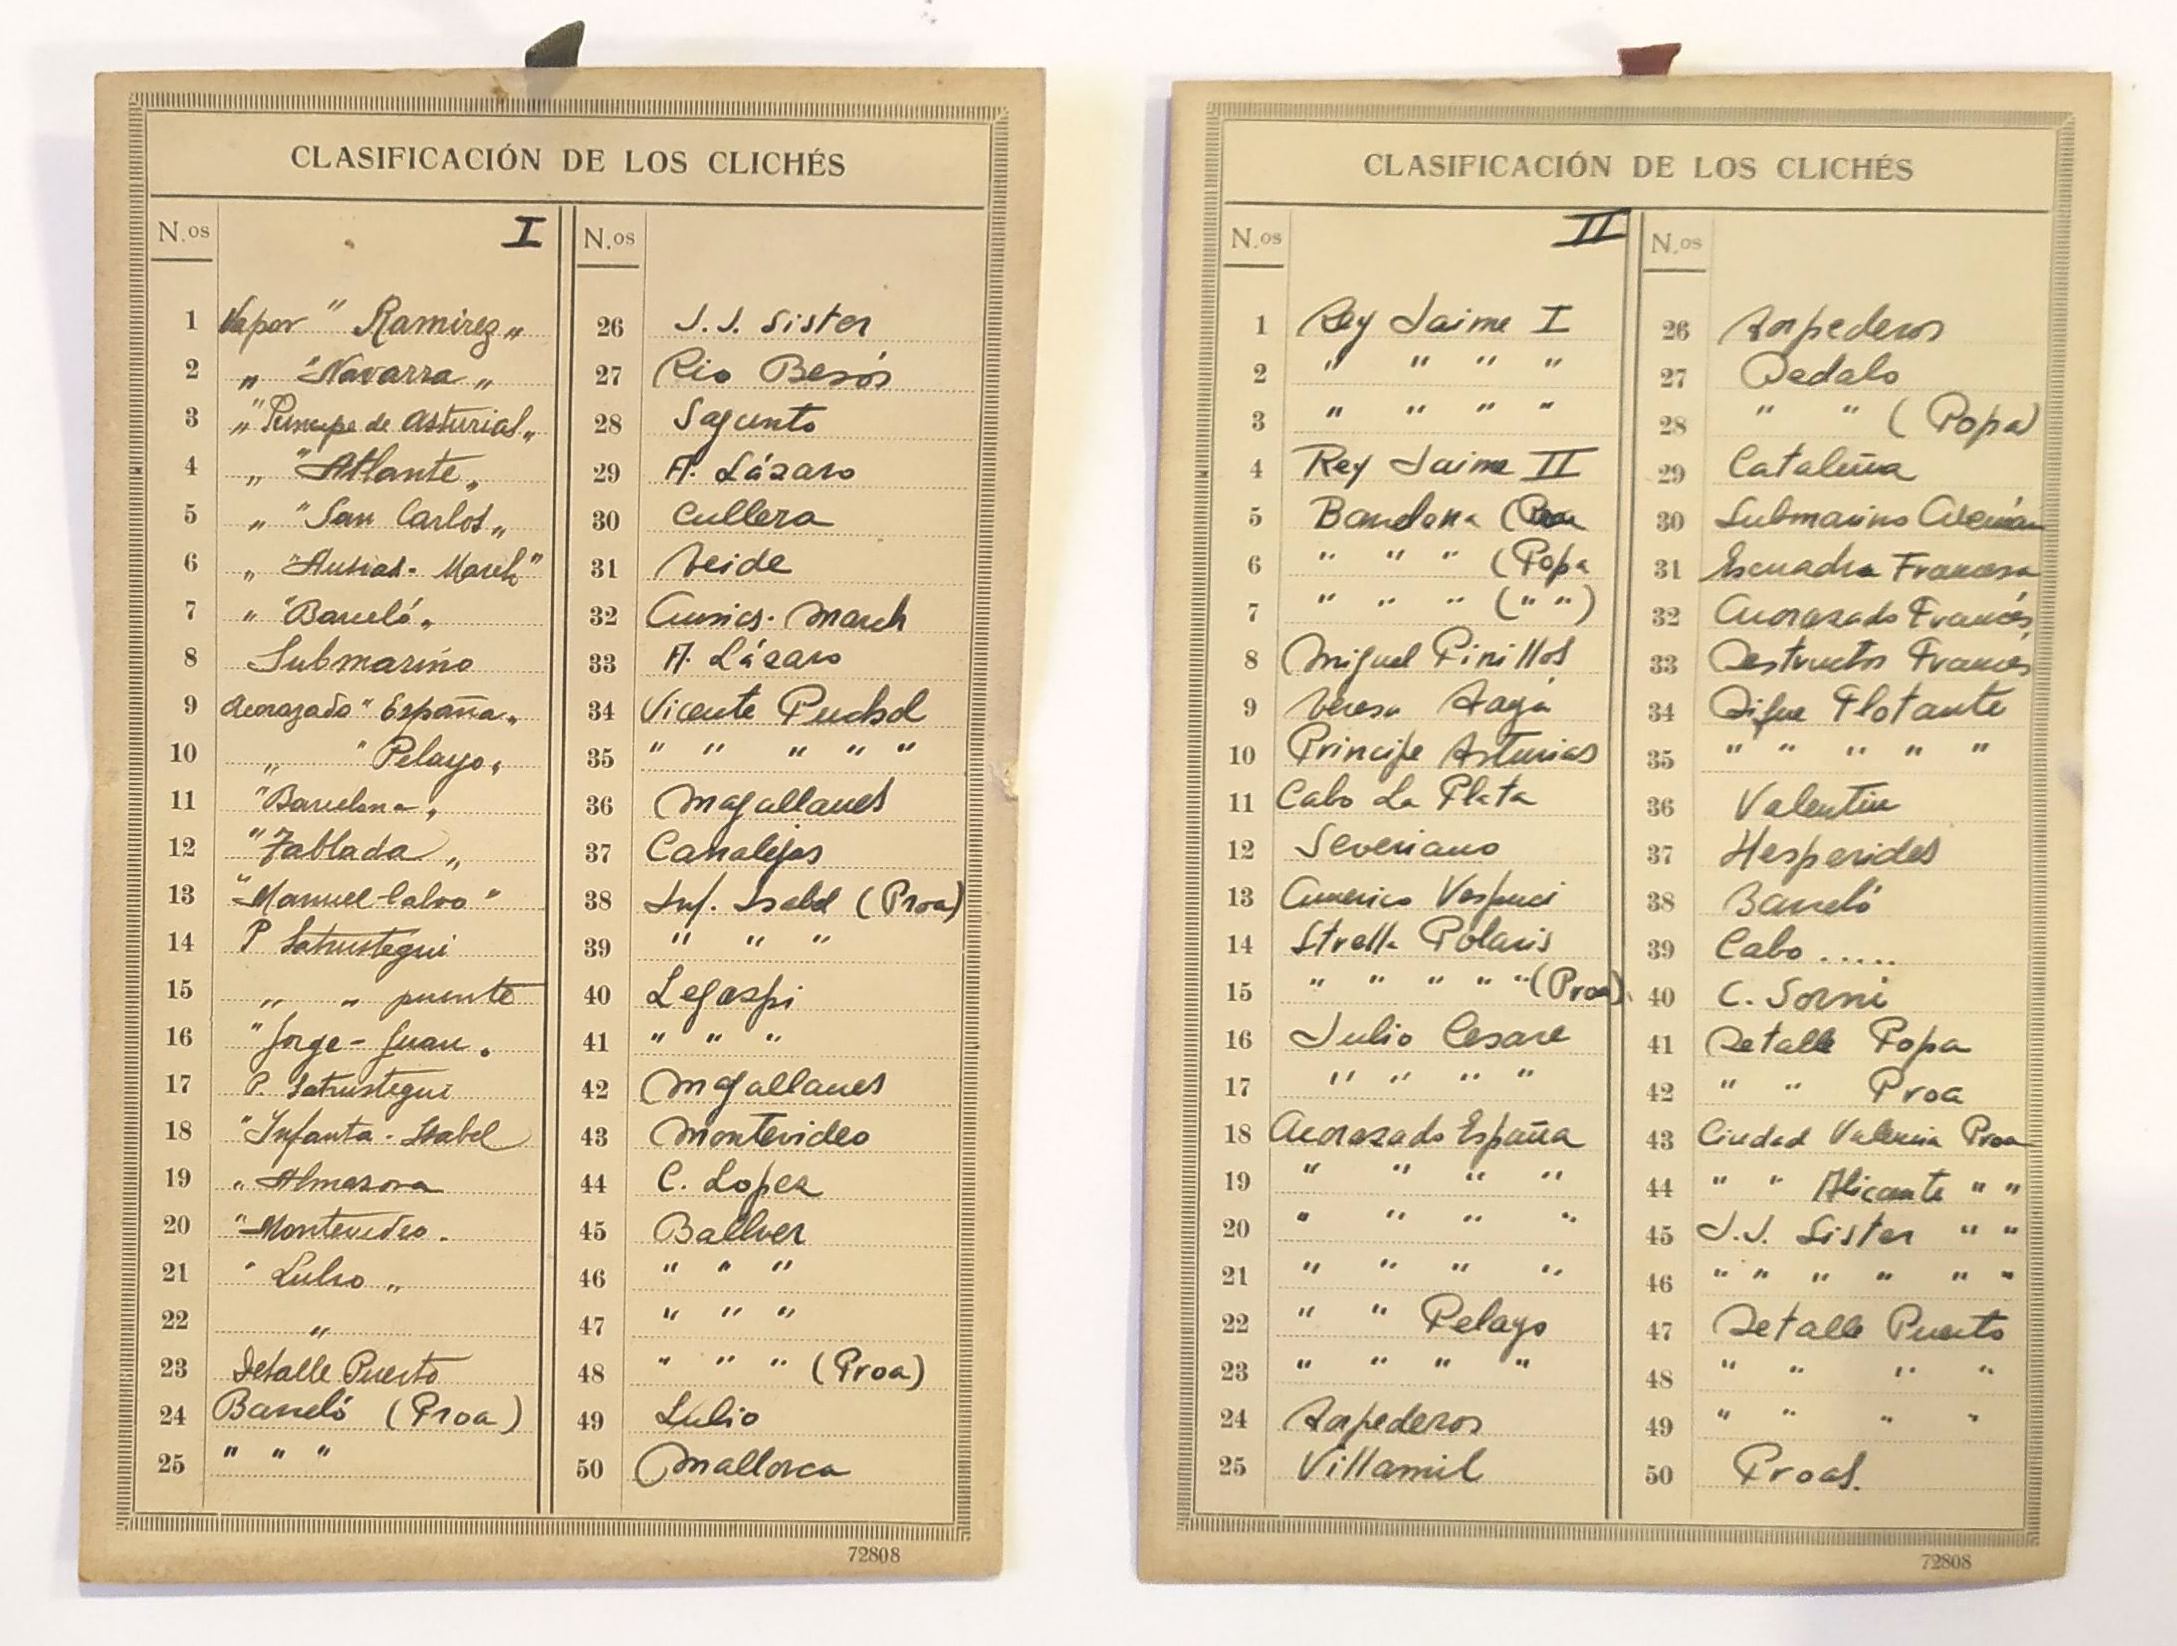 CLASIFICACIÓN DE LOS CLICHÉS
N.os I
1 Vapor "Ramirez"
2 " "Navarra"
3 " "Principe de Asturias"
4 " "Atlante"
5 " "San Carlos"
6 " "Ausias-March"
7 " "Barceló"
8 Submarino
9 Acorazado "España"
10 " "Pelayo"
11 "Barcelona"
12 "Tablada"
13 "Manuel-Calvo"
14 P Satrustegui
15 " " puente
16 "Jorge-Juan"
17 P. Satrustegui
18 "Infanta-Isabel
19 "Almazora
20 "Montevideo.
21 "Lulio"
22 "
23 Detalle Puerto
24 Barceló (Proa)
25 " " "
N.os
26 J.J. Sister
27 Rio Besós
28 Sagunto
29 A. Lázaro
30 Cullera
31
32 March
33 A. Lázaro
34 Vicente Puchol
35 " " " " "
36 Magallanes
37 Canalejas
38 Inf. Isabel (Proa)
39 " " "
40 Legazpi
41 " " "
42 Magallanes
43 Montevideo
44 C. Lopez
45 Ballver
46 " " "
47 " " "
48 " " " (Proa)
49 Lulio
50 Mallorca
72808
CLASIFICACIÓN DE LOS CLICHÉS
N.os II
1 Rey Jaime I
2 " " " "
3 " " " "
4 Rey Jaime II
5 (Proa
6 " " " (Popa
7 " " " (" ")
8 Miguel Pinillos
9
10 Principe Asturias
11 Cabo La Plata
12 Severiano
13 Americo Vespuci
14 Strella Polaris
15 " " " " " (Proa)
16 Julio Cesare
17 " " " "
18 Acorazado España
19 " " " "
20 " " " "
21 " " " "
22 " " Pelayo
23 " " " "
24 Torpederos
25 Villamil
N.os
26 Torpederos
27 Dedalo
28 " " (Popa)
29 Cataluña
30 Submarino Aleman
31 Escuadra Francesa
32 Acorazado Francés
33 Destructor Francés
34 Dique Flotante
35 " " " " "
36 Valentin
37 Hesperides
38 Barceló
39 Cabo .....
40 C. Sorni
41 Detalle Popa
42 " " Proa
43 Ciudad Valencia Proa
44 " " Alicante " "
45 J.J. Sister " "
46 " " " " " "
47 Detalle Puerto
48 " " " "
49 " " " "
50 Proas.
72808